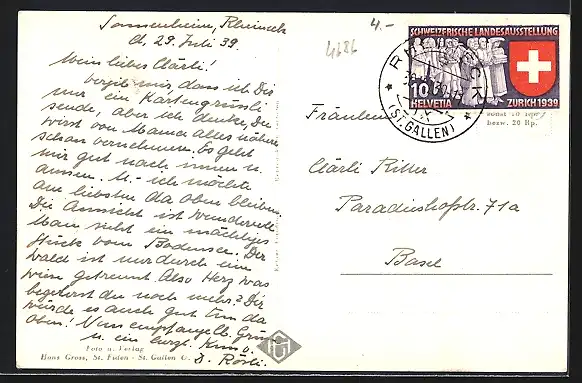 Sonnenheim, Rheineck
d. 29. Juli 39
Mein liebes Clärli!
Verzeih mir, dass ich Dir
nur ein Kartengrüssli
sende, aber ich denke, Du
wirst von Mama alles nähere
schon vernehmen. Es geht
mir gut nach innen u.
aussen. U. - ich möchte
am liebsten da oben bleiben.
Die Aussicht ist wundervoll
Man sieht ein mächtiges
Stück vom Bodensee. Der
Wald ist nur durch ein
wein getrennt. Also Herz was
begehrst du noch mehr? Dir
würde es auch gut tun da
oben! Nun empfange lb. Grüsse
u. ein
D. Rösli.
Foto u. Verlag
Hans Gross, St. Fiden - St. Gallen O.
4.-
4686
SCHWEIZERISCHE LANDESAUSSTELLUNG
10
HELVETIA
ZÜRICH 1939
(ST. GALLEN)
sonst 10 Rp.
bezw. 20 Rp.
Fräulein
Clärli Ritter
Paradieshofstr. 71a
Basel